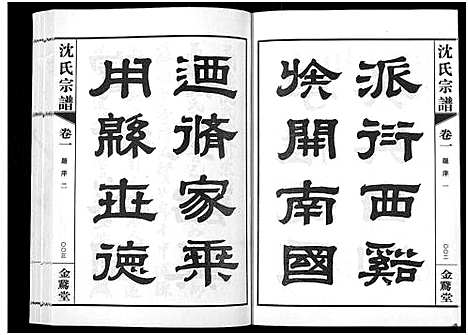 沈氏宗譜 卷一 題序 一 〇〇二 金鵞堂
派衍西谿
開南國
迺脩家乘
用緜世德
沈氏宗譜 卷一 題序 二 〇〇三 金鵞堂